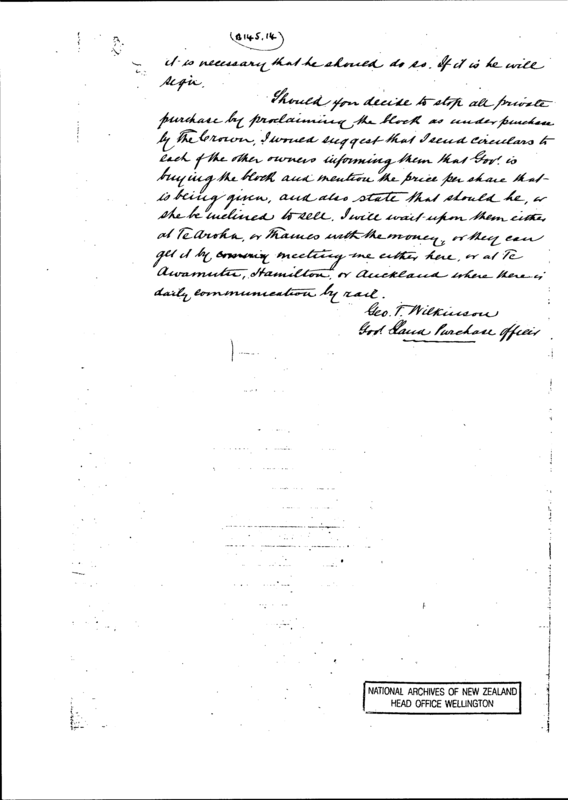 (B145.14)
it is necessary that he should do so. If it is he will
sign.
Should you decide to stop all private
purchase by proclaiming the block as under purchase
by The Crown, I would suggest that I send circulars to
each of the other owners informing them that Gov!. is
buying the block and mention the price per share that
is being given, and also state that should he, or
she be inclined to sell. I will wait upon them either
at Te Aroha, or Thames with the money, or they can
get it by meeting me either here, or at Te
Awamutu, Hamilton, or Auckland where there is
daily communication by rail.
Geo. T. Wilkinson
Gov!. Land Purchase Officer
NATIONAL ARCHIVES OF NEW ZEALAND
HEAD OFFICE WELLINGTON